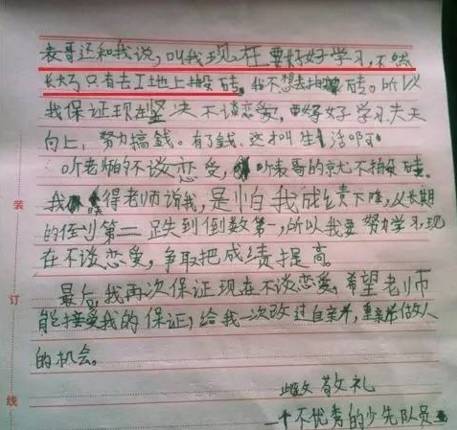 表哥还和我说，叫我现在要好好学习，不然
长大了只有去工地上搬砖。我不想去搬砖。所以
我保证现在坚决不谈恋爱，要好好学习天天
向上，努力搞錢。有了錢，这才叫生活啊
听老师的不谈恋爱，听表哥的就不搬砖。
我 得老师说我，是怕我成绩下降，从长期
的倒数第二跌到倒数第一，所以我要努力学习，现
在不谈恋爱，争取把成绩提高。
最后，我再次保证现在不谈恋爱，希望老师
能接受我的保证，给我一次改过自新，重新做人
的机会。
敬礼
一个不优秀的少先队员
装
订
线